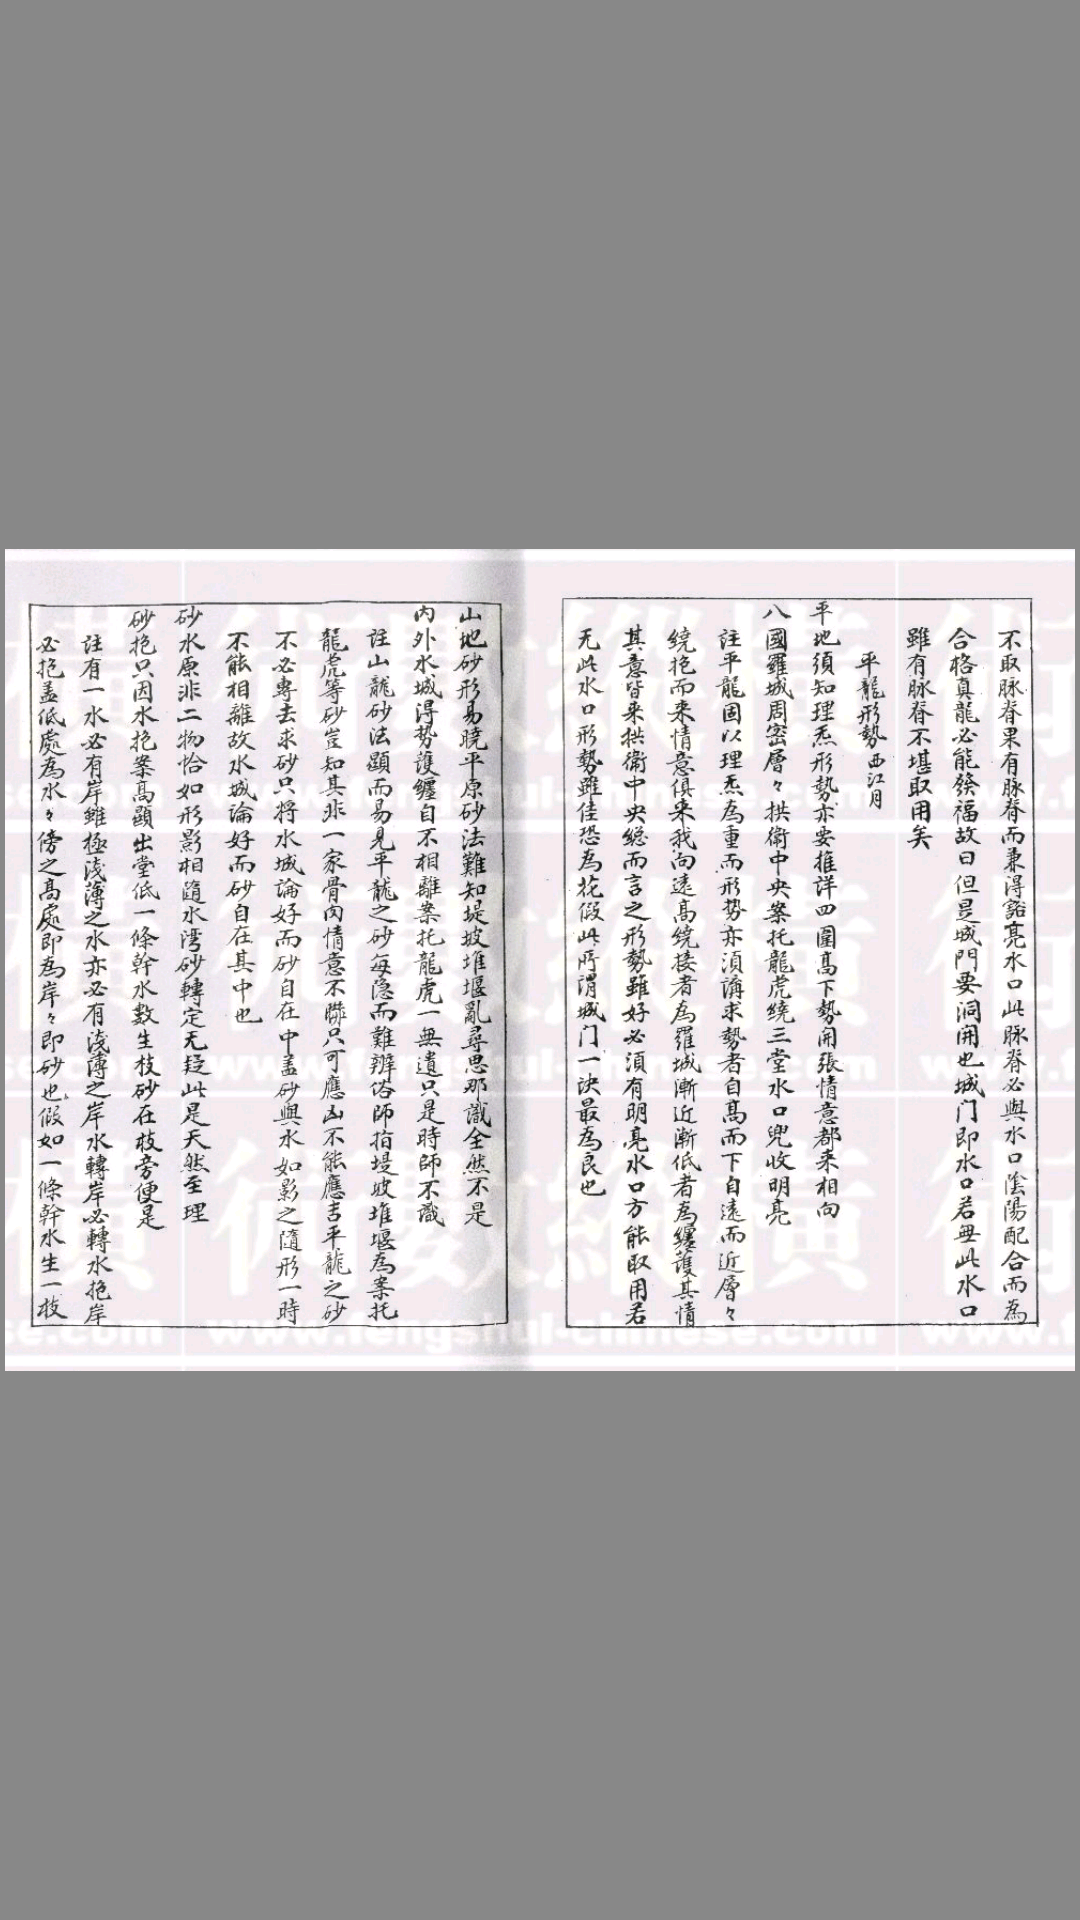 不取脉脊果有脉脊而兼得豁亮水口此脉脊必與水口陰陽配合而為
合格真龍必能發福故曰但是城門要洞開也城门即水口若毋此水口
雖有脉脊不堪取用矣
平龍形勢 西江月
平地須知理炁形勢亦要推詳四圍高下勢開張情意都来相向
八國羅城周密層々拱衛中央案托龍虎繞三堂水口兜收明亮
註平龍固以理炁為重而形势亦須講求勢者自高而下自遠而近層々
繞抱而来情意俱来我向遠高繞接者為羅城漸近漸低者為纏護其情
其意皆来拱衛中央總而言之形勢雖好必須有明亮水口方能取用若
无此水口形勢雖佳恐為花假此所谓城门一决最為良也
山地砂形易曉平原砂法難知堤坡堆堰亂尋思那識全然不是
内外水城得势護纏自不相離案托龍虎一無遺只是時師不識
註山龍砂法顯而易見平龍之砂每隐而難辨俗師指堤坡堆堰為案托
龍虎等砂豈知其非一家骨肉情意不聯只可應凶不能應吉平龍之砂
不必專去求砂只将水城論好而砂自在中盖砂與水如影之隨形一時
不能相離故水城論好而砂自在其中也
砂水原非二物恰如形影相隨水湾砂轉定无疑此是天然至理
砂抱只因水抱案高顯出堂低一條幹水數生枝砂在枝旁便是
註有一水必有岸雖極浅薄之水亦必有浅薄之岸水轉岸必轉水抱岸
必抱盖低處為水々傍之高處即為岸々即砂也假如一條幹水生一枝
www.fengshui-chinese.com